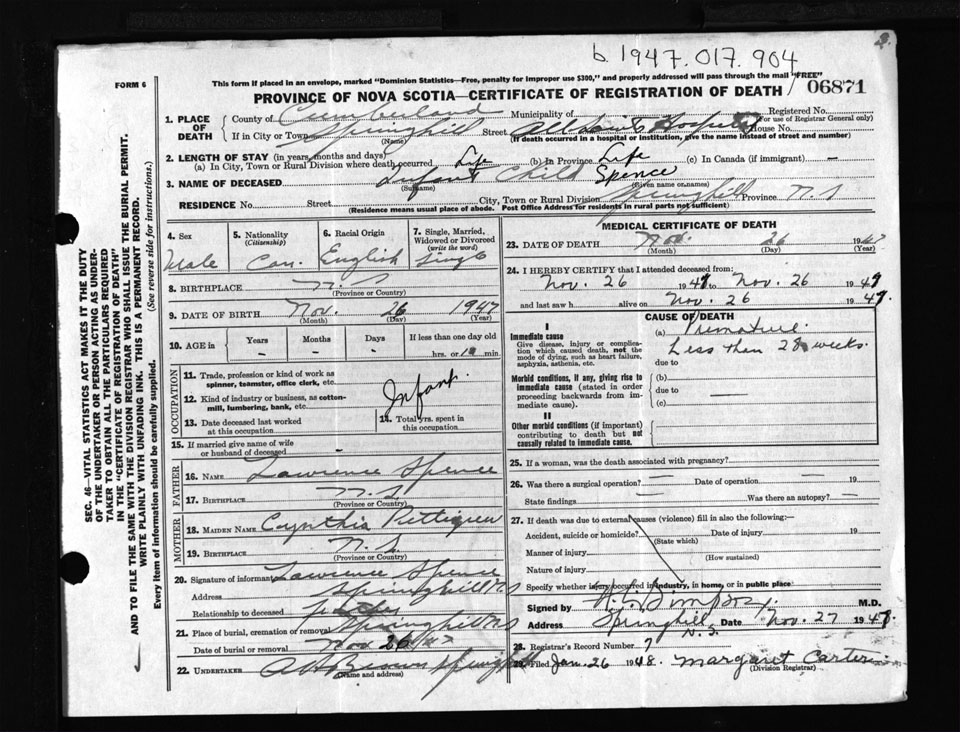 b 1947. 017. 904
FORM 6
This form if placed in an envelope, marked "Dominion Statistics—Free, penalty for improper use $300," and properly addressed will pass through the mail "FREE"
PROVINCE OF NOVA SCOTIA—CERTIFICATE OF REGISTRATION OF DEATH 06871
1. PLACE OF DEATH
County of Cumberland Municipality of Registered No.
(For use of Registrar General only)
If in City or Town Springhill Street Hospital House No.
(Name) (If death occurred in a hospital or institution, give the name instead of street and number)
2. LENGTH OF STAY (in years, months and days)
(a) In City, Town or Rural Division where death occurred Life (b) In Province Life (c) In Canada (if immigrant) —
3. NAME OF DECEASED Infant Child Spence
(Surname) (Given name or names)
RESIDENCE No. Street City, Town or Rural Division Springhill Province N.S
(Residence means usual place of abode. Post Office Address for residents in rural parts not sufficient)
SEC. 46—VITAL STATISTICS ACT MAKES IT THE DUTY
OF THE UNDERTAKER OR PERSON ACTING AS UNDER-
TAKER TO OBTAIN ALL THE PARTICULARS REQUIRED
IN THE "CERTIFICATE OF REGISTRATION OF DEATH"
AND TO FILE THE SAME WITH THE DIVISION REGISTRAR WHO SHALL ISSUE THE BURIAL PERMIT.
WRITE PLAINLY WITH UNFADING INK. THIS IS A PERMANENT RECORD.
Every item of information should be carefully supplied. (See reverse side for instructions.)
4. Sex
Male
5. Nationality
(Citizenship)
Can.
6. Racial Origin
English
7. Single, Married,
Widowed or Divorced
(write the word)
Single
8. BIRTHPLACE N.S
(Province or Country)
9. DATE OF BIRTH Nov. 26 1947
(Month) (Day) (Year)
10. AGE in Years Months Days If less than one day
- - - hrs. or 10 min.
OCCUPATION
11. Trade, profession or kind of work as
spinner, teamster, office clerk, etc.
12. Kind of industry or business, as cotton-
mill, lumbering, bank, etc. Infant.
13. Date deceased last worked
at this occupation
14. Total yrs. spent in
this occupation
15. If married give name of wife
or husband of deceased -
FATHER
16. NAME Lawrence Spence
17. BIRTHPLACE N.S
(Province or Country)
MOTHER
18. MAIDEN NAME Cynthia Pettigrew
19. BIRTHPLACE N.S.
(Province or Country)
20. Signature of informant Lawrence Spence
Address Springhill N S
Relationship to deceased father
21. Place of burial, cremation or removal Springhill N S
Date of burial or removal Nov 26/47
22. UNDERTAKER A H Brown Springhill
(Name and address)
MEDICAL CERTIFICATE OF DEATH
23. DATE OF DEATH Nov. 26 1947
(Month) (Day) (Year)
24. I HEREBY CERTIFY that I attended deceased from:
Nov. 26 1947 to Nov. 26 1947
and last saw h alive on Nov. 26 1947.
CAUSE OF DEATH
I
Immediate cause
Give disease, injury or complica-
tion which caused death, not the
mode of dying, such as heart failure,
asphyxia, asthenia, etc.
(a) Premature.
Less than 28 weeks.
due to
Morbid conditions, if any, giving rise to
immediate cause (stated in order
proceeding backwards from im-
mediate cause).
(b)
due to —
(c)
II
Other morbid conditions (if important)
contributing to death but not
causally related to immediate cause.
25. If a woman, was the death associated with pregnancy?
26. Was there a surgical operation? — Date of operation 19
State findings — Was there an autopsy? —
27. If death was due to external causes (violence) fill in also the following:—
Accident, suicide or homicide? Date of injury 19
(State which)
Manner of injury
(How sustained)
Nature of injury
Specify whether injury occurred in industry, in home, or in public place
Signed by M.D.
Address Springhill, N.S. Date Nov. 27 1947.
28. Registrar's Record Number 7
29. Filed Jan. 26 1948. Margaret Carter
(Division Registrar)